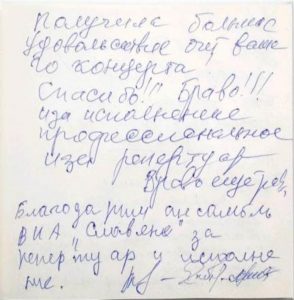 Получила большое
удовольствие от ваше
го концерта.
Спасибо!!! Браво!!!
за исполнение
профессиональное
и за репертуар
Браво еще раз.
Благодарим ансамбль
ВИА "Славяне" за
репертуар и исполне
ние.